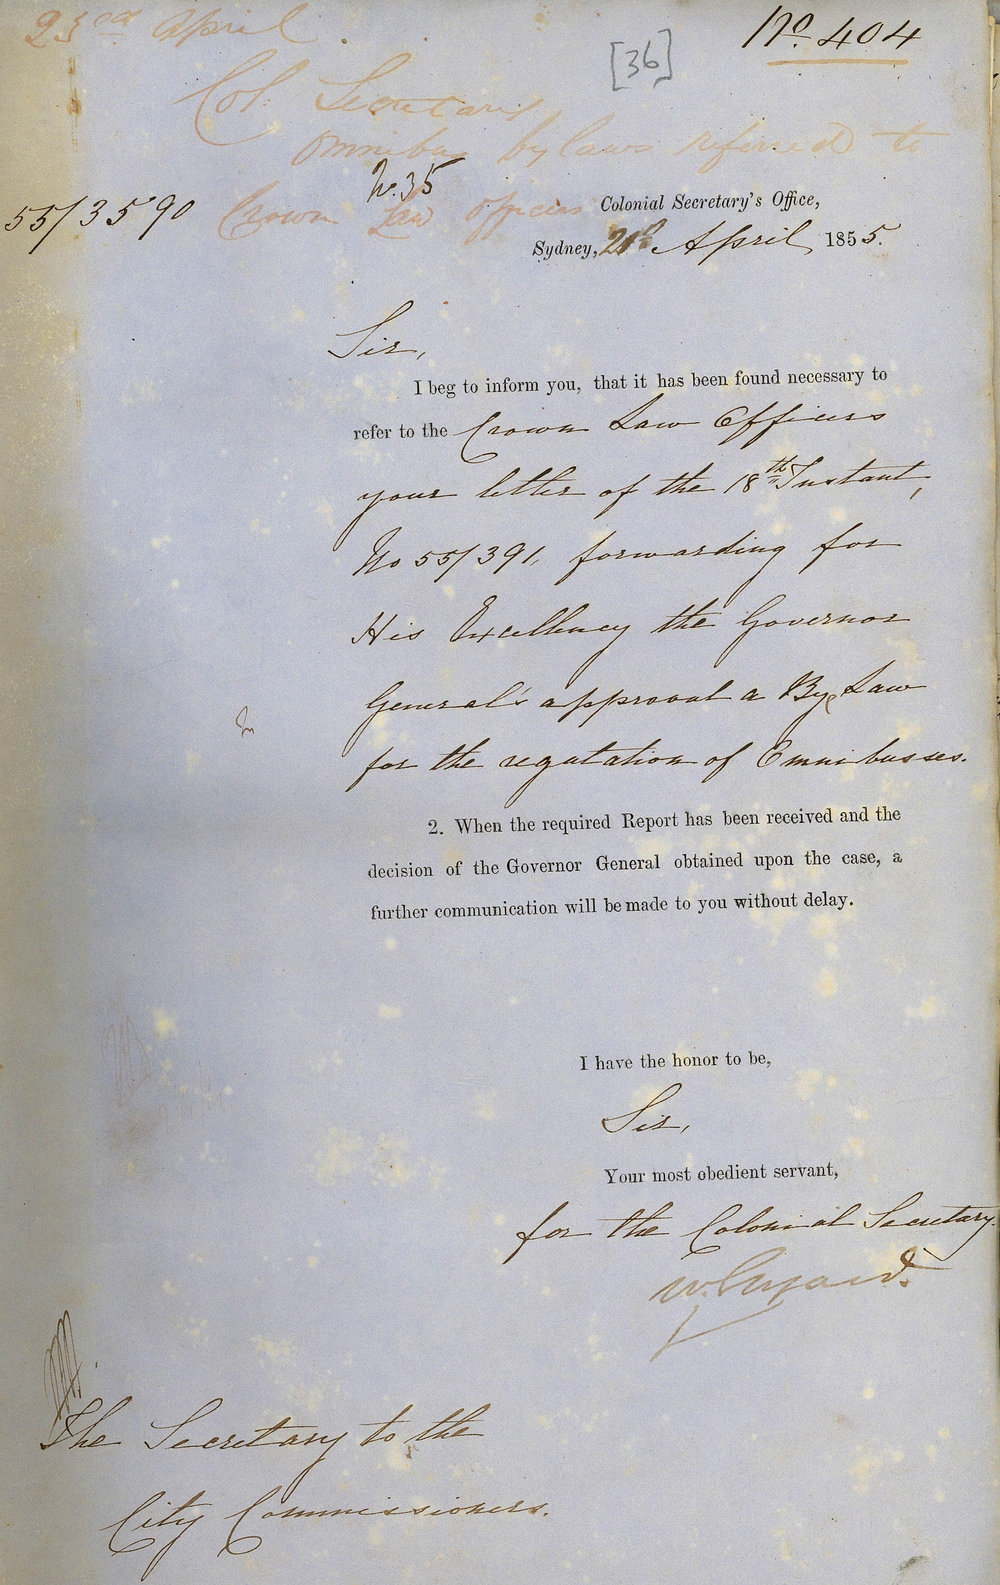 23rd April
No. 404
[36]
Col. Secretary
Omnibus bylaws referred to
Crown Law officers
No. 35
55/3590
Colonial Secretary's Office,
Sydney, 21st April, 1855.
Sir,
I beg to inform you, that it has been found necessary to
refer to the Crown Law Officers
your letter of the 18th Instant,
No 55/391, forwarding for
His Excellency the Governor
General's approval a By Law
for the regulation of Omnibusses.
2. When the required Report has been received and the
decision of the Governor General obtained upon the case, a
further communication will be made to you without delay.
I have the honor to be,
Sir,
Your most obedient servant,
for the Colonial Secretary
W. Elyard.
The Secretary to the
City Commissioners.